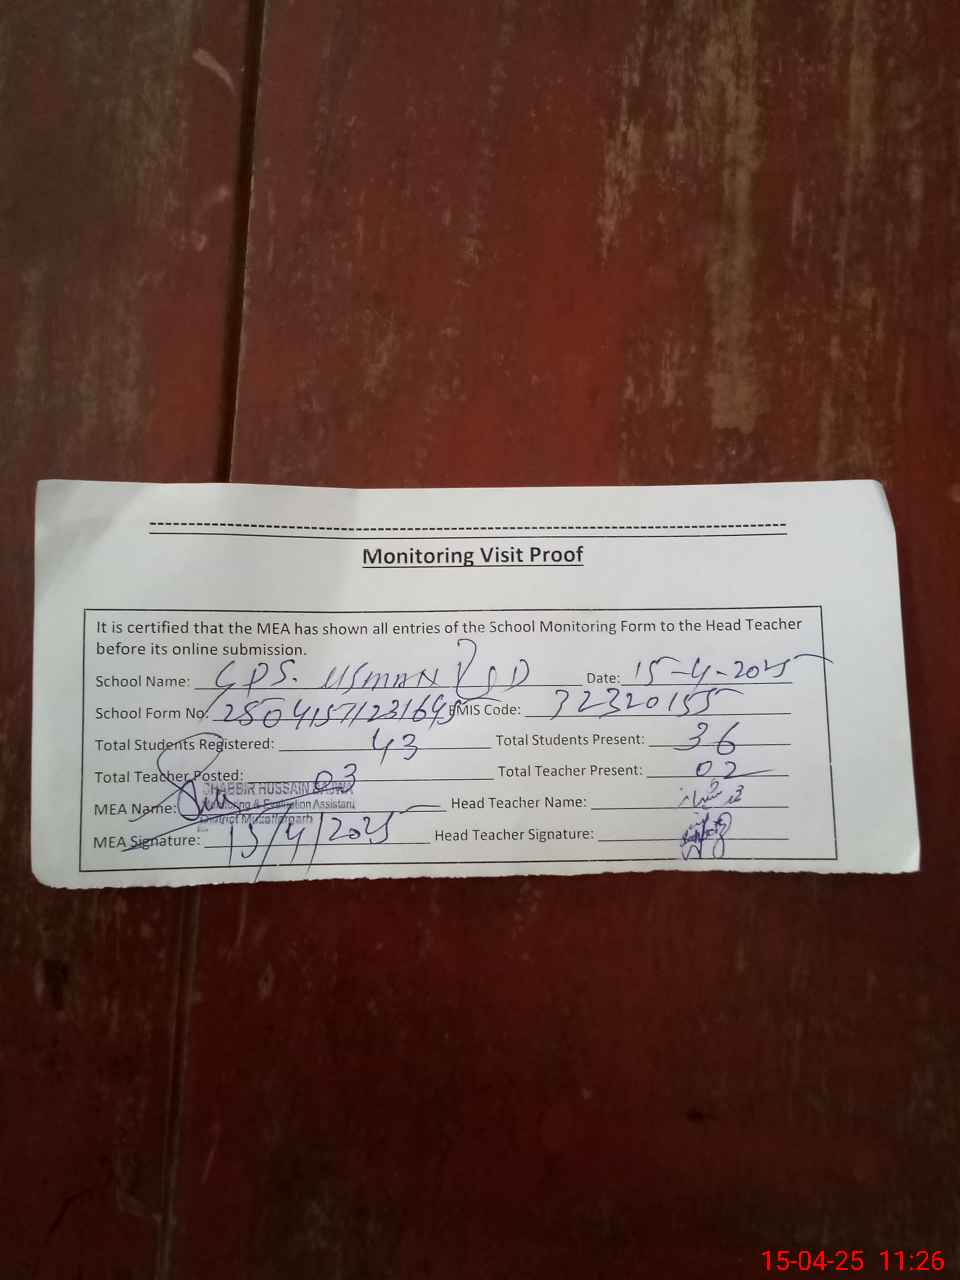 Monitoring Visit Proof
It is certified that the MEA has shown all entries of the School Monitoring Form to the Head Teacher
before its online submission.
School Name: GPS. USMAN Date: 15-4-2025
School Form No: EMIS Code: 32320155
Total Students Registered: 43 Total Students Present: 36
Total Teacher Posted: 03 Total Teacher Present: 02
SHABBIR HUSSAIN
MEA Name: Monitoring & Evaluation Assistant Head Teacher Name:
District Muzaffargarh
MEA Signature: 15/4/2025 Head Teacher Signature:
15-04-25 11:26